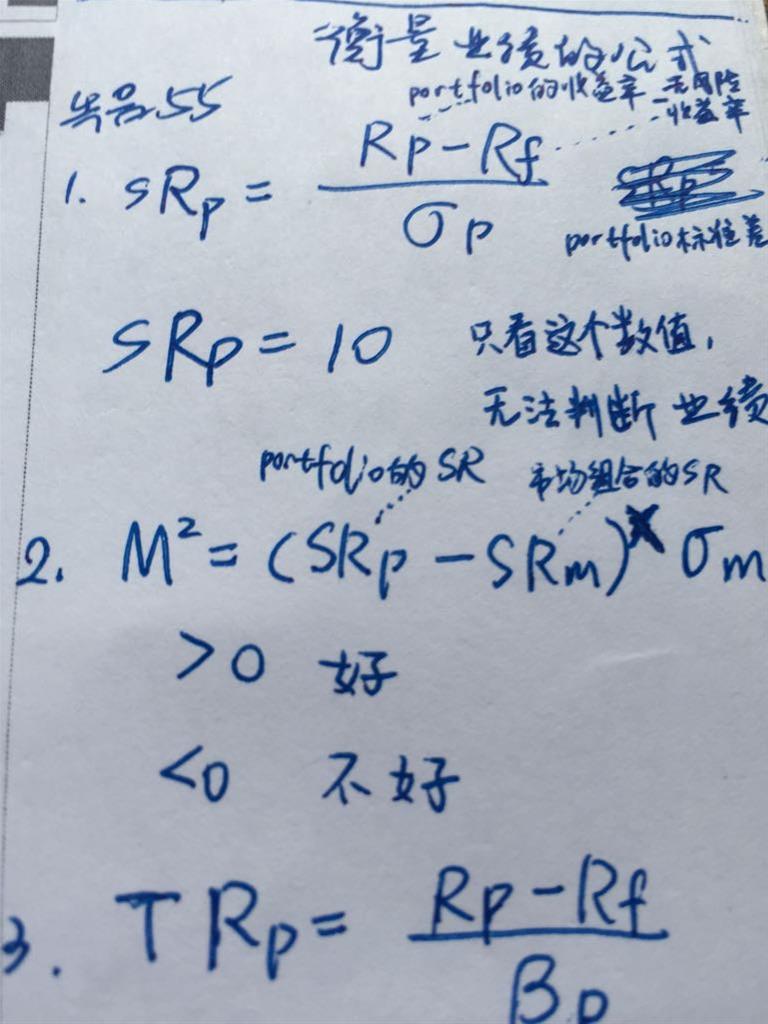 衡量业绩的公式
portfolio的收益率 无风险收益率
55
1. SRp = (Rp - Rf) / σp
portfolio标准差
SRp = 10 只看这个数值，
无法判断业绩
portfolio的SR 市场组合的SR
2. M² = (SRp - SRm) × σm
>0 好
<0 不好
3. TRp = (Rp - Rf) / βp